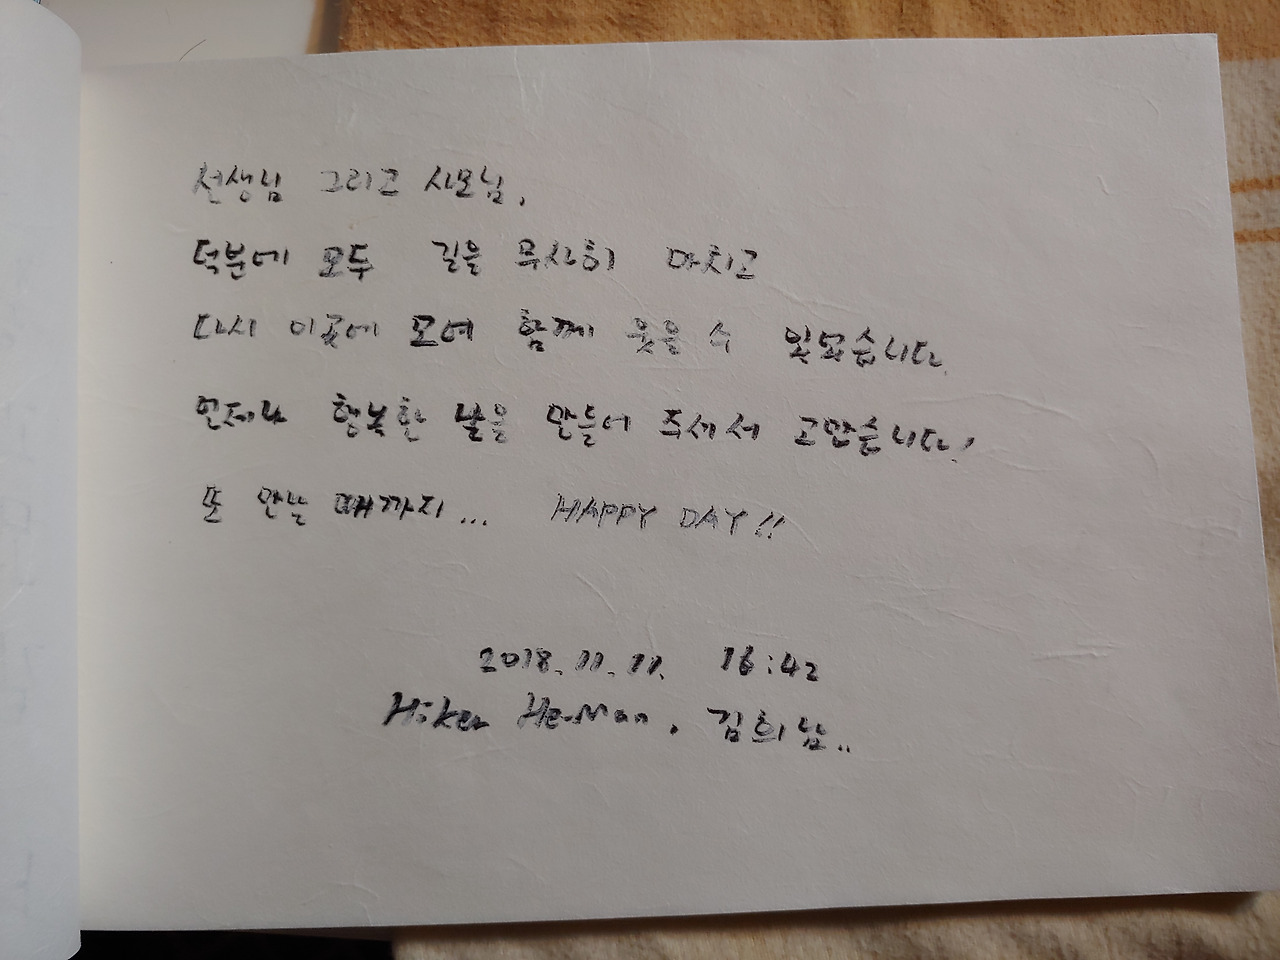 선생님 그리고 사모님,
덕분에 모두 길을 무사히 마치고
다시 이곳에 모여 함께 웃을 수 있었습니다.
언제나 행복한 날을 만들어 주셔서 고맙습니다!
또 만날 때까지... HAPPY DAY!!
2018.11.11. 16:42
Hiker He-Man, 김희남..